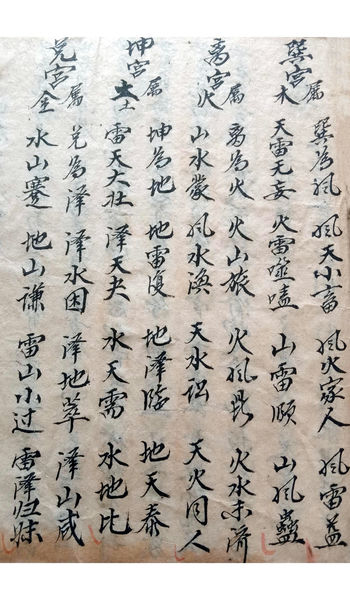 巽宫属木
巽為風 風天小畜 風火家人 風雷益
天雷无妄 火雷噬嗑 山雷颐 山風蠱
离宫属火
离為火 火山旅 火風鼎 火水未济
山水蒙 風水涣 天水讼 天火同人
坤宫属土
坤為地 地雷復 地泽临 地天泰
雷天大壮 泽天夬 水天需 水地比
兑宫属金
兑為泽 泽水困 泽地萃 泽山咸
水山蹇 地山谦 雷山小过 雷泽归妹